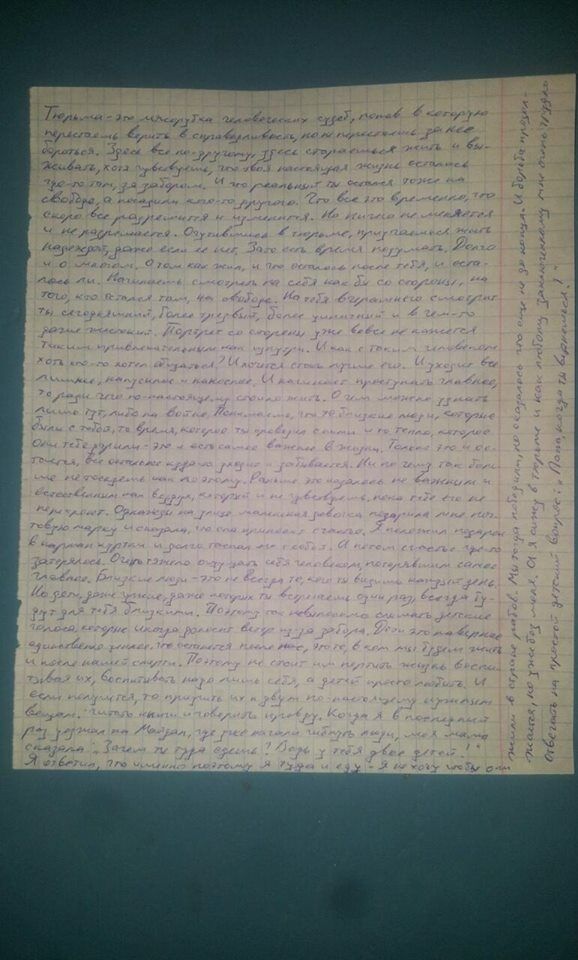 Тюрьма - это мясорубка человеческих судеб, попав в которую
перестаешь верить в справедливость, но не перестаешь за нее
бороться. Здесь все по-другому, здесь стараешься жить и вы-
живать, хотя чувствуешь, что твоя настоящая жизнь осталась
где-то там, за забором. И что реальный ты остался тоже на
свободе, а посадили кого-то другого. Что все это временно, что
скоро все разрешится и изменится. Но ничего не меняется
и не разрешается. Очутившись в тюрьме, продолжаешь жить
надеждой, даже если ее нет. Зато есть время подумать. Долго
и о многом. О том как жил, и что осталось после тебя, и оста-
лось ли. Начинаешь смотреть на себя как бы со стороны, на
того, кто остался там, на свободе. На тебя вчерашнего смотрит
ты сегодняшний, более трезвый, более циничный и в чем-то
даже жестокий. Портрет со стороны уже вовсе не кажется
таким привлекательным как изнутри. И как с таким человеком
хоть кто-то хотел общаться? И хочется стать лучше его. И уходит все
лишнее, напускное и наносное. И начинает проступать главное,
то ради чего по-настоящему стоило жить. О чем можно узнать
лишь тут, либо на войне. Понимаешь, что те близкие люди, которые
были с тобой, то время, которое ты проводил с ними и то тепло, которое
они тебе дарили - это и есть самое важное в жизни. Только это и ос-
тается, все остальное куда-то уходит и забывается. Ни по чему так боль-
ше не тоскуешь как по этому. Раньше это казалось не важным и
естественным как воздух, который и не чувствуешь, пока тебе его не
перекроют. Однажды на улице маленькая девочка подарила мне поч-
товую марку и сказала, что она приносит счастье. Я положил подарок
в карман куртки и долго таскал ее с собой. И потом счастье где-то
затерялось. Очень тяжело ощущать себя человеком, потерявшим самое
главное. Близкие люди - это не всегда те, кого ты видишь каждый день.
Но дети, даже чужие, даже которых ты встречаешь один раз, всегда бу-
дут для тебя близкими. Поэтому так невыносимо слышать детские
голоса, которые иногда доносит ветер из-за забора. Дети это наверное
единственно ценное что останется после нас, это те, в ком мы будем жить
и после нашей смерти. Поэтому не стоит им портить жизнь воспи-
тывая их, воспитывать надо лишь себя, а детей просто любить. И
если получится, то приучить их к двум по-настоящему нужным
вещам: читать книги и говорить правду. Когда я в последний
раз уезжал на Майдан, где уже начали гибнуть люди, моя мама
сказала: "Зачем ты туда едешь? Ведь у тебя двое детей!"
Я ответил, что именно поэтому я туда и еду - Я не хочу чтобы они
жили в стране рабов. Мы тогда победили, но оказалось что еще не до конца. И борьба продол-
жается, но уже без меня. А я сижу в тюрьме и как любому заключенному мне очень трудно
отвечать на простой детский вопрос: "Папа, когда ты вернешься?"